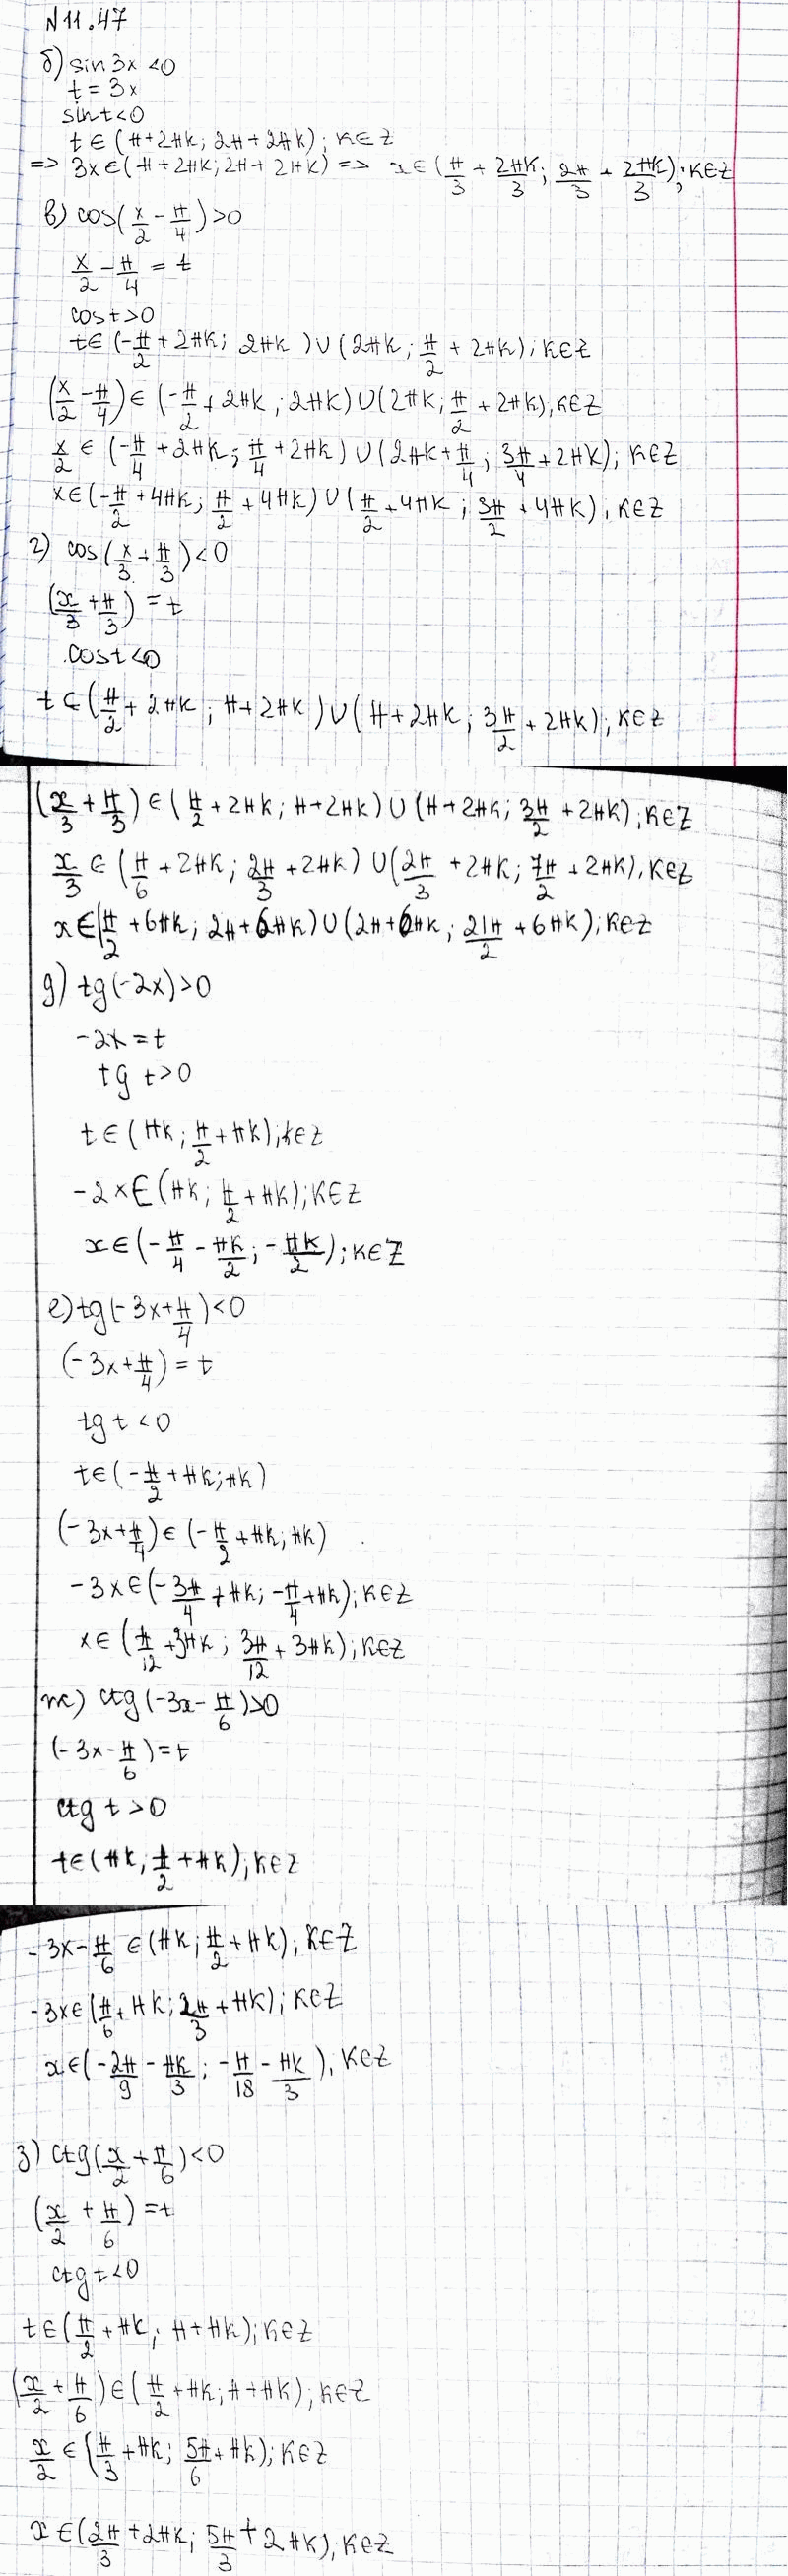 N 11.47
б) sin 3x < 0
t = 3x
sin t < 0
t ∈ (π + 2πk; 2π + 2πk); k ∈ Z
=> 3x ∈ (π + 2πk; 2π + 2πk) => x ∈ (π/3 + 2πk/3; 2π/3 + 2πk/3); k ∈ Z
в) cos(x/2 - π/4) > 0
x/2 - π/4 = t
cos t > 0
t ∈ (-π/2 + 2πk; 2πk) ∪ (2πk; π/2 + 2πk); k ∈ Z
(x/2 - π/4) ∈ (-π/2 + 2πk; 2πk) ∪ (2πk; π/2 + 2πk); k ∈ Z
x/2 ∈ (-π/4 + 2πk; π/4 + 2πk) ∪ (2πk + π/4; 3π/4 + 2πk); k ∈ Z
x ∈ (-π/2 + 4πk; π/2 + 4πk) ∪ (π/2 + 4πk; 3π/2 + 4πk); k ∈ Z
г) cos(x/3 + π/3) < 0
(x/3 + π/3) = t
cos t < 0
t ∈ (π/2 + 2πk; π + 2πk) ∪ (π + 2πk; 3π/2 + 2πk); k ∈ Z
(x/3 + π/3) ∈ (π/2 + 2πk; π + 2πk) ∪ (π + 2πk; 3π/2 + 2πk); k ∈ Z
x/3 ∈ (π/6 + 2πk; 2π/3 + 2πk) ∪ (2π/3 + 2πk; 7π/2 + 2πk); k ∈ Z
x ∈ (π/2 + 6πk; 2π + 6πk) ∪ (2π + 6πk; 21π/2 + 6πk); k ∈ Z
д) tg(-2x) > 0
-2x = t
tg t > 0
t ∈ (πk; π/2 + πk); k ∈ Z
-2x ∈ (πk; π/2 + πk); k ∈ Z
x ∈ (-π/4 - πk/2; -πk/2); k ∈ Z
е) tg(-3x + π/4) < 0
(-3x + π/4) = t
tg t < 0
t ∈ (-π/2 + πk; πk)
(-3x + π/4) ∈ (-π/2 + πk; πk)
-3x ∈ (-3π/4 + πk; -π/4 + πk); k ∈ Z
x ∈ (π/12 + 3πk; 3π/12 + 3πk); k ∈ Z
ж) ctg(-3x - π/6) > 0
(-3x - π/6) = t
ctg t > 0
t ∈ (πk; π/2 + πk); k ∈ Z
-3x - π/6 ∈ (πk; π/2 + πk); k ∈ Z
-3x ∈ (π/6 + πk; 2π/3 + πk); k ∈ Z
x ∈ (-2π/9 - πk/3; -π/18 - πk/3); k ∈ Z
з) ctg(x/2 + π/6) < 0
(x/2 + π/6) = t
ctg t < 0
t ∈ (π/2 + πk; π + πk); k ∈ Z
(x/2 + π/6) ∈ (π/2 + πk; π + πk); k ∈ Z
x/2 ∈ (π/3 + πk; 5π/6 + πk); k ∈ Z
x ∈ (2π/3 + 2πk; 5π/3 + 2πk); k ∈ Z